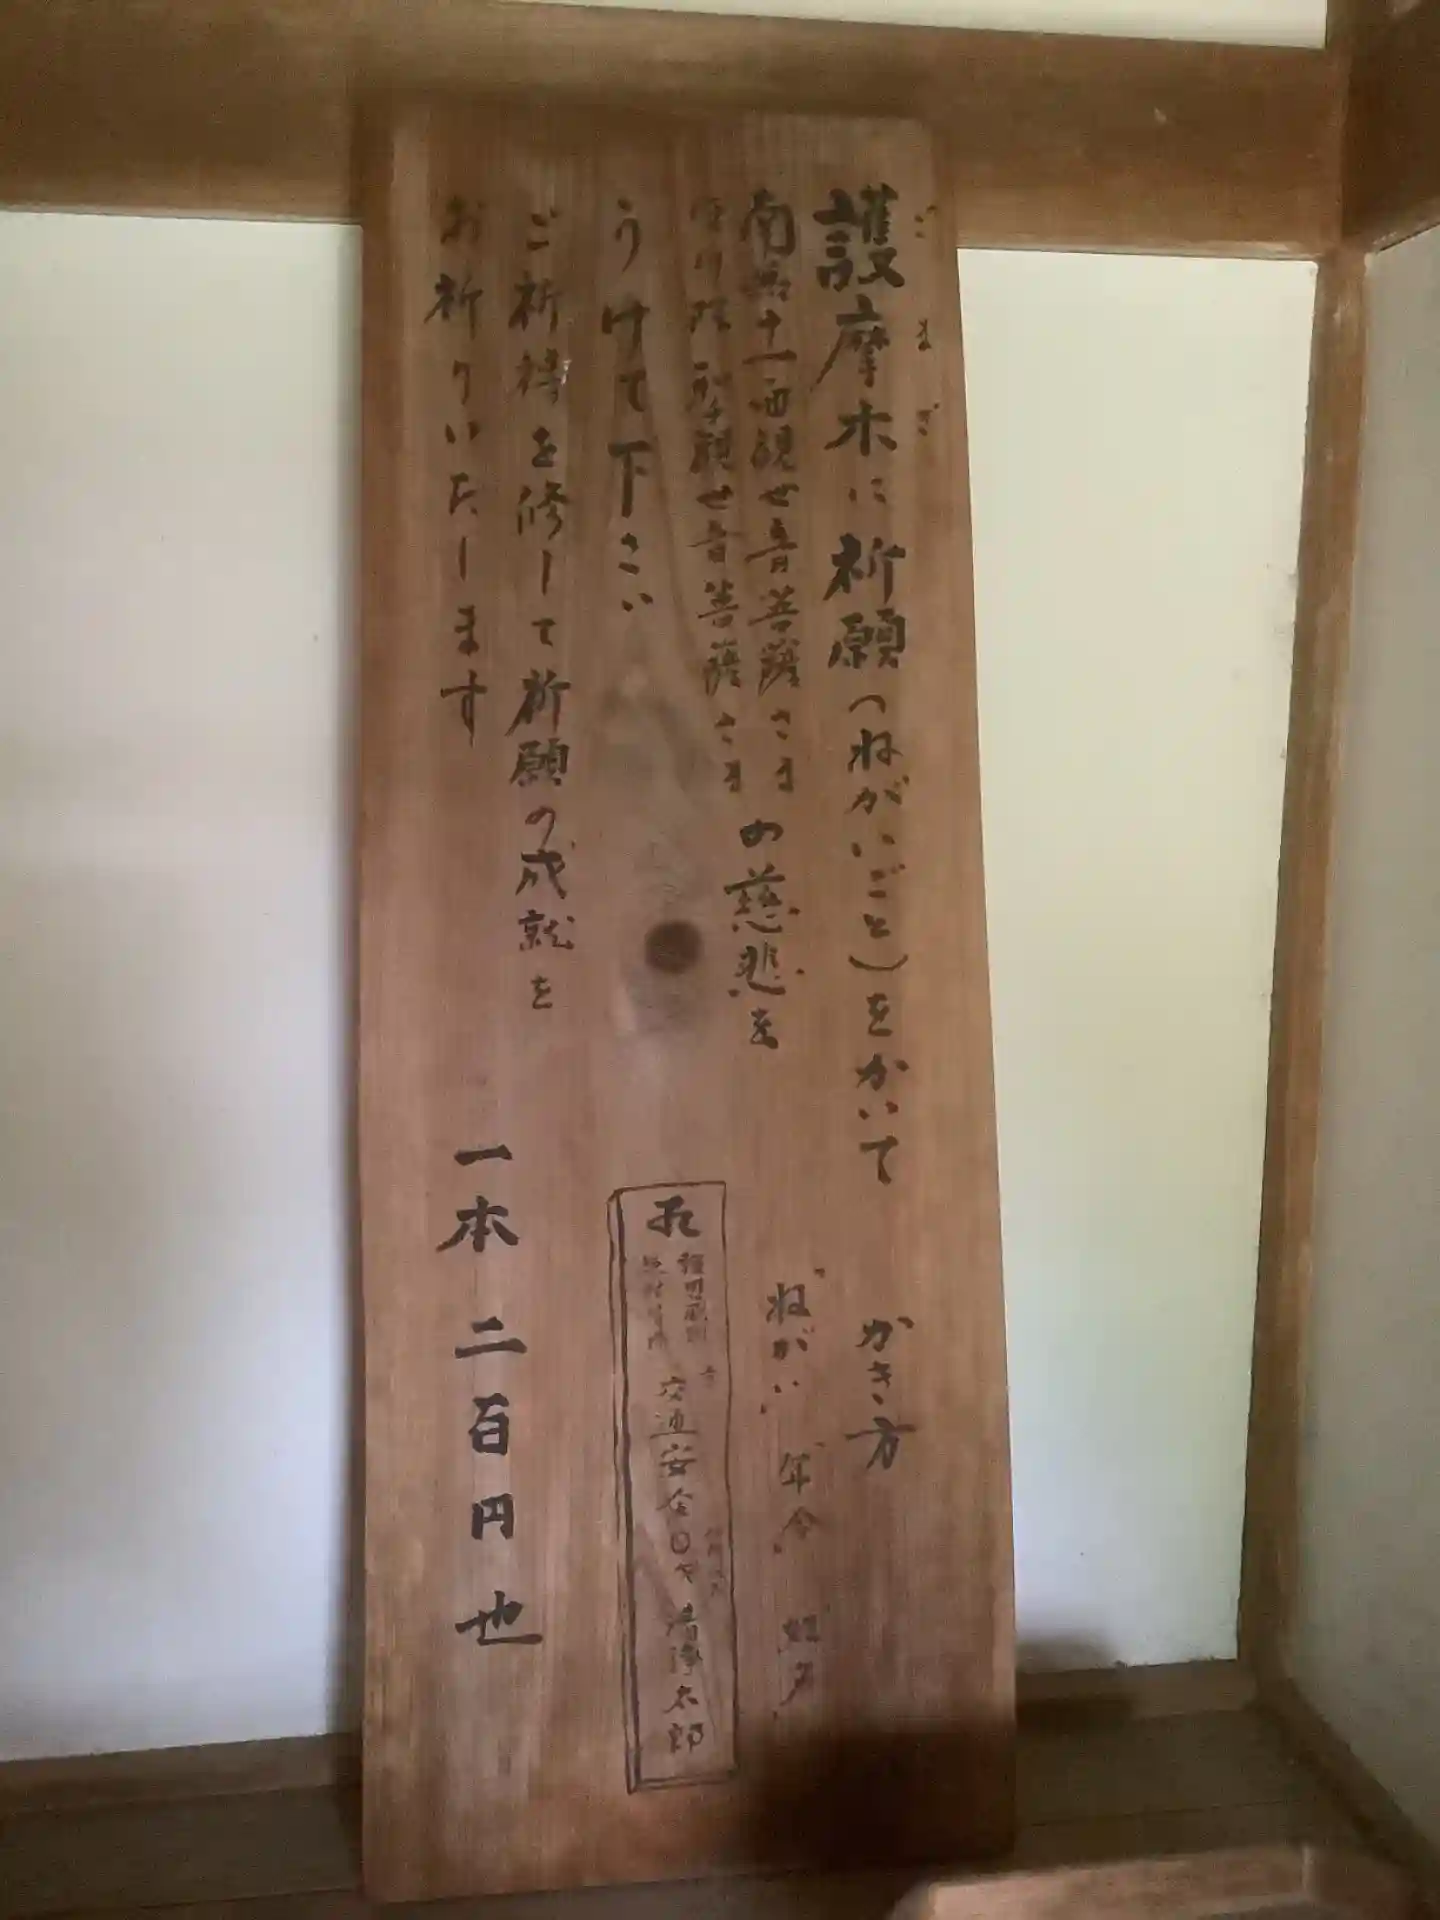 護摩木に祈願(ねがいごと)をかいて
ごまぎ
南無十一面観世音菩薩さま
聖観世音菩薩さま
の慈悲を
うけて下さい
ご祈祷を修して祈願の成就を
お祈りいたします
かき方
"ねがい" "年令" "姓名"
交通安全 清浄太郎
一本 二百円也